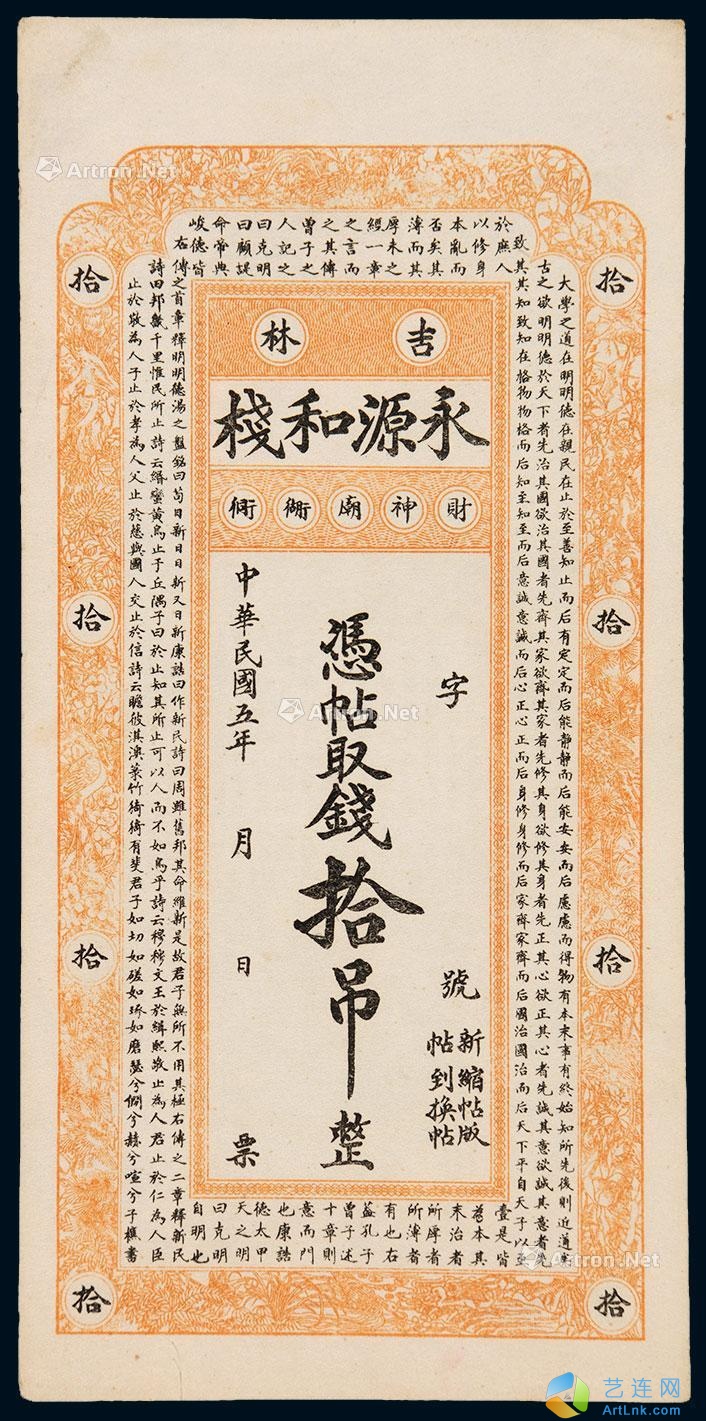 拾
拾
拾
拾
拾
拾
拾
拾
大學之道在明明德在親民在止於至善知止而后有定定而后能靜靜而后能安安而后慮慮而得物有本末事有終始知所先後則近道矣
古之欲明明德於天下者先治其國欲治其國者先齊其家欲齊其家者先修其身欲修其身者先正其心欲正其心者先誠其意欲誠其意者先
致其其知致知在格物物格而后知至知至而后意誠意誠而后心正心正而后身修身修而后家齊家齊而后國治國治而后天下平自天子以至
於庶人
壹是皆
以修身
為本其
本亂而
末治者
否矣其
所厚者
薄而其
所薄者
厚未之
有也右
經一章
蓋孔子
之言而
曾子述
之其傳
十章則
曾子之
意而門
人記之
也康誥
曰克明
德太甲
曰顧諟
天之明
命帝典
曰克明
峻德皆
自明也
右傳之首章釋明明德湯之盤銘曰苟日新日日新又日新康誥曰作新民詩曰周雖舊邦其命維新是故君子無所不用其極右傳之二章釋新民
詩曰邦畿千里惟民所止詩云緡蠻黃鳥止于丘隅子曰於止知其所止可以人而不如鳥乎詩云穆穆文王於緝熙敬止為人君止於仁為人臣
止於敬為人子止於孝為人父止於慈與國人交止於信詩云瞻彼淇澳菉竹猗猗有斐君子如切如磋如琢如磨瑟兮僩兮赫兮喧兮子樵書
吉林
永源和棧
財神廟衚衕
字 號
新縮帖版
帖到換帖
憑帖取錢拾吊整
中華民國五年 月 日 票
Artron.Net
Artron.Net
Artron.Net
艺连网
ArtLnk.com